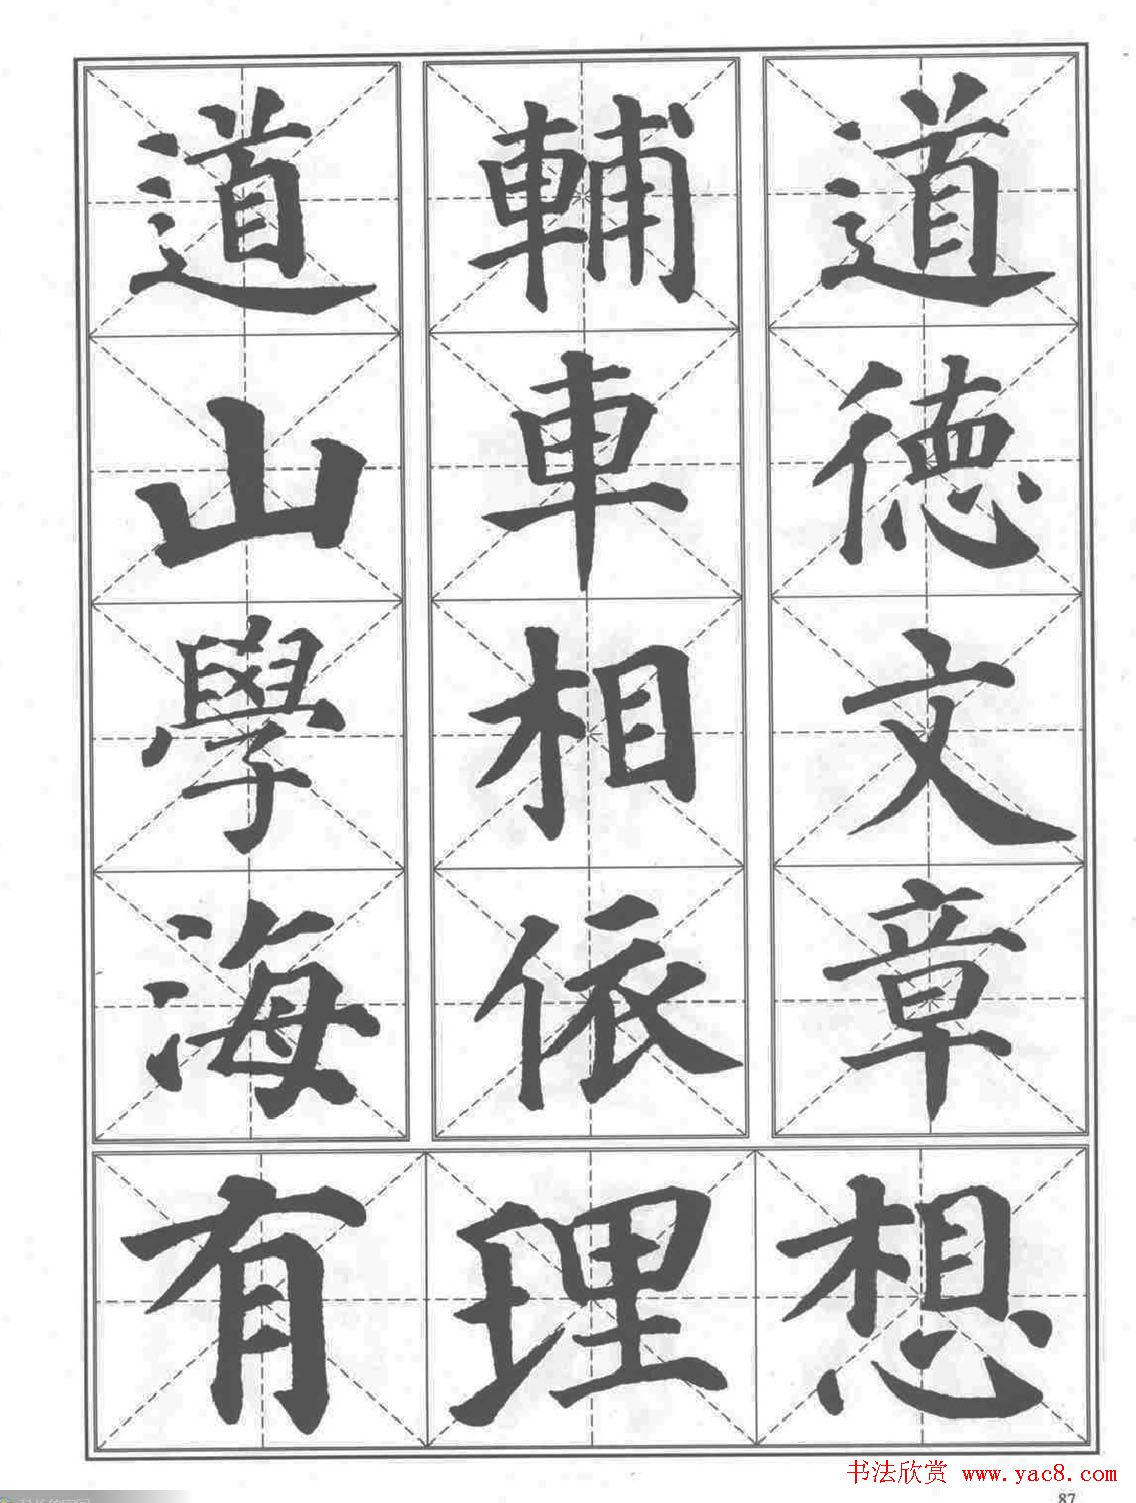 道德文章
輔車相依
道山學海
有理想
书法欣赏 www.yac8.com
87